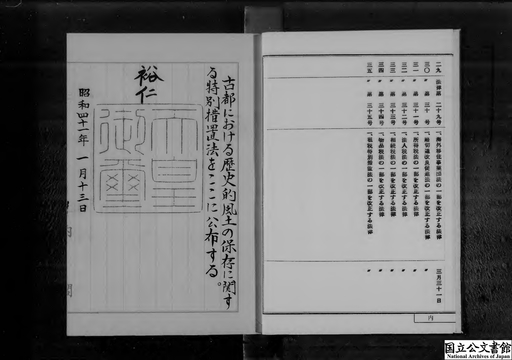 二九 法律第 二十九号 「海外移住事業団法の一部を改正する法律 三月三十一日
三〇 〃 第 三十号 「踏切道改良促進法の一部を改正する法律 〃
三一 〃 第 三十一号 「所得税法の一部を改正する法律 〃
三二 〃 第 三十二号 「法人税法の一部を改正する法律 〃
三三 〃 第 三十三号 「相続税法の一部を改正する法律 〃
三四 〃 第 三十四号 「物品税法の一部を改正する法律 〃
三五 〃 第 三十五号 「租税特別措置法の一部を改正する法律 〃
内
古都における歴史的風土の保存に関す
る特別措置法をここに公布する。
裕仁
天皇
御璽
昭和四十一年 一月十三日
国立公文書館
National Archives of Japan